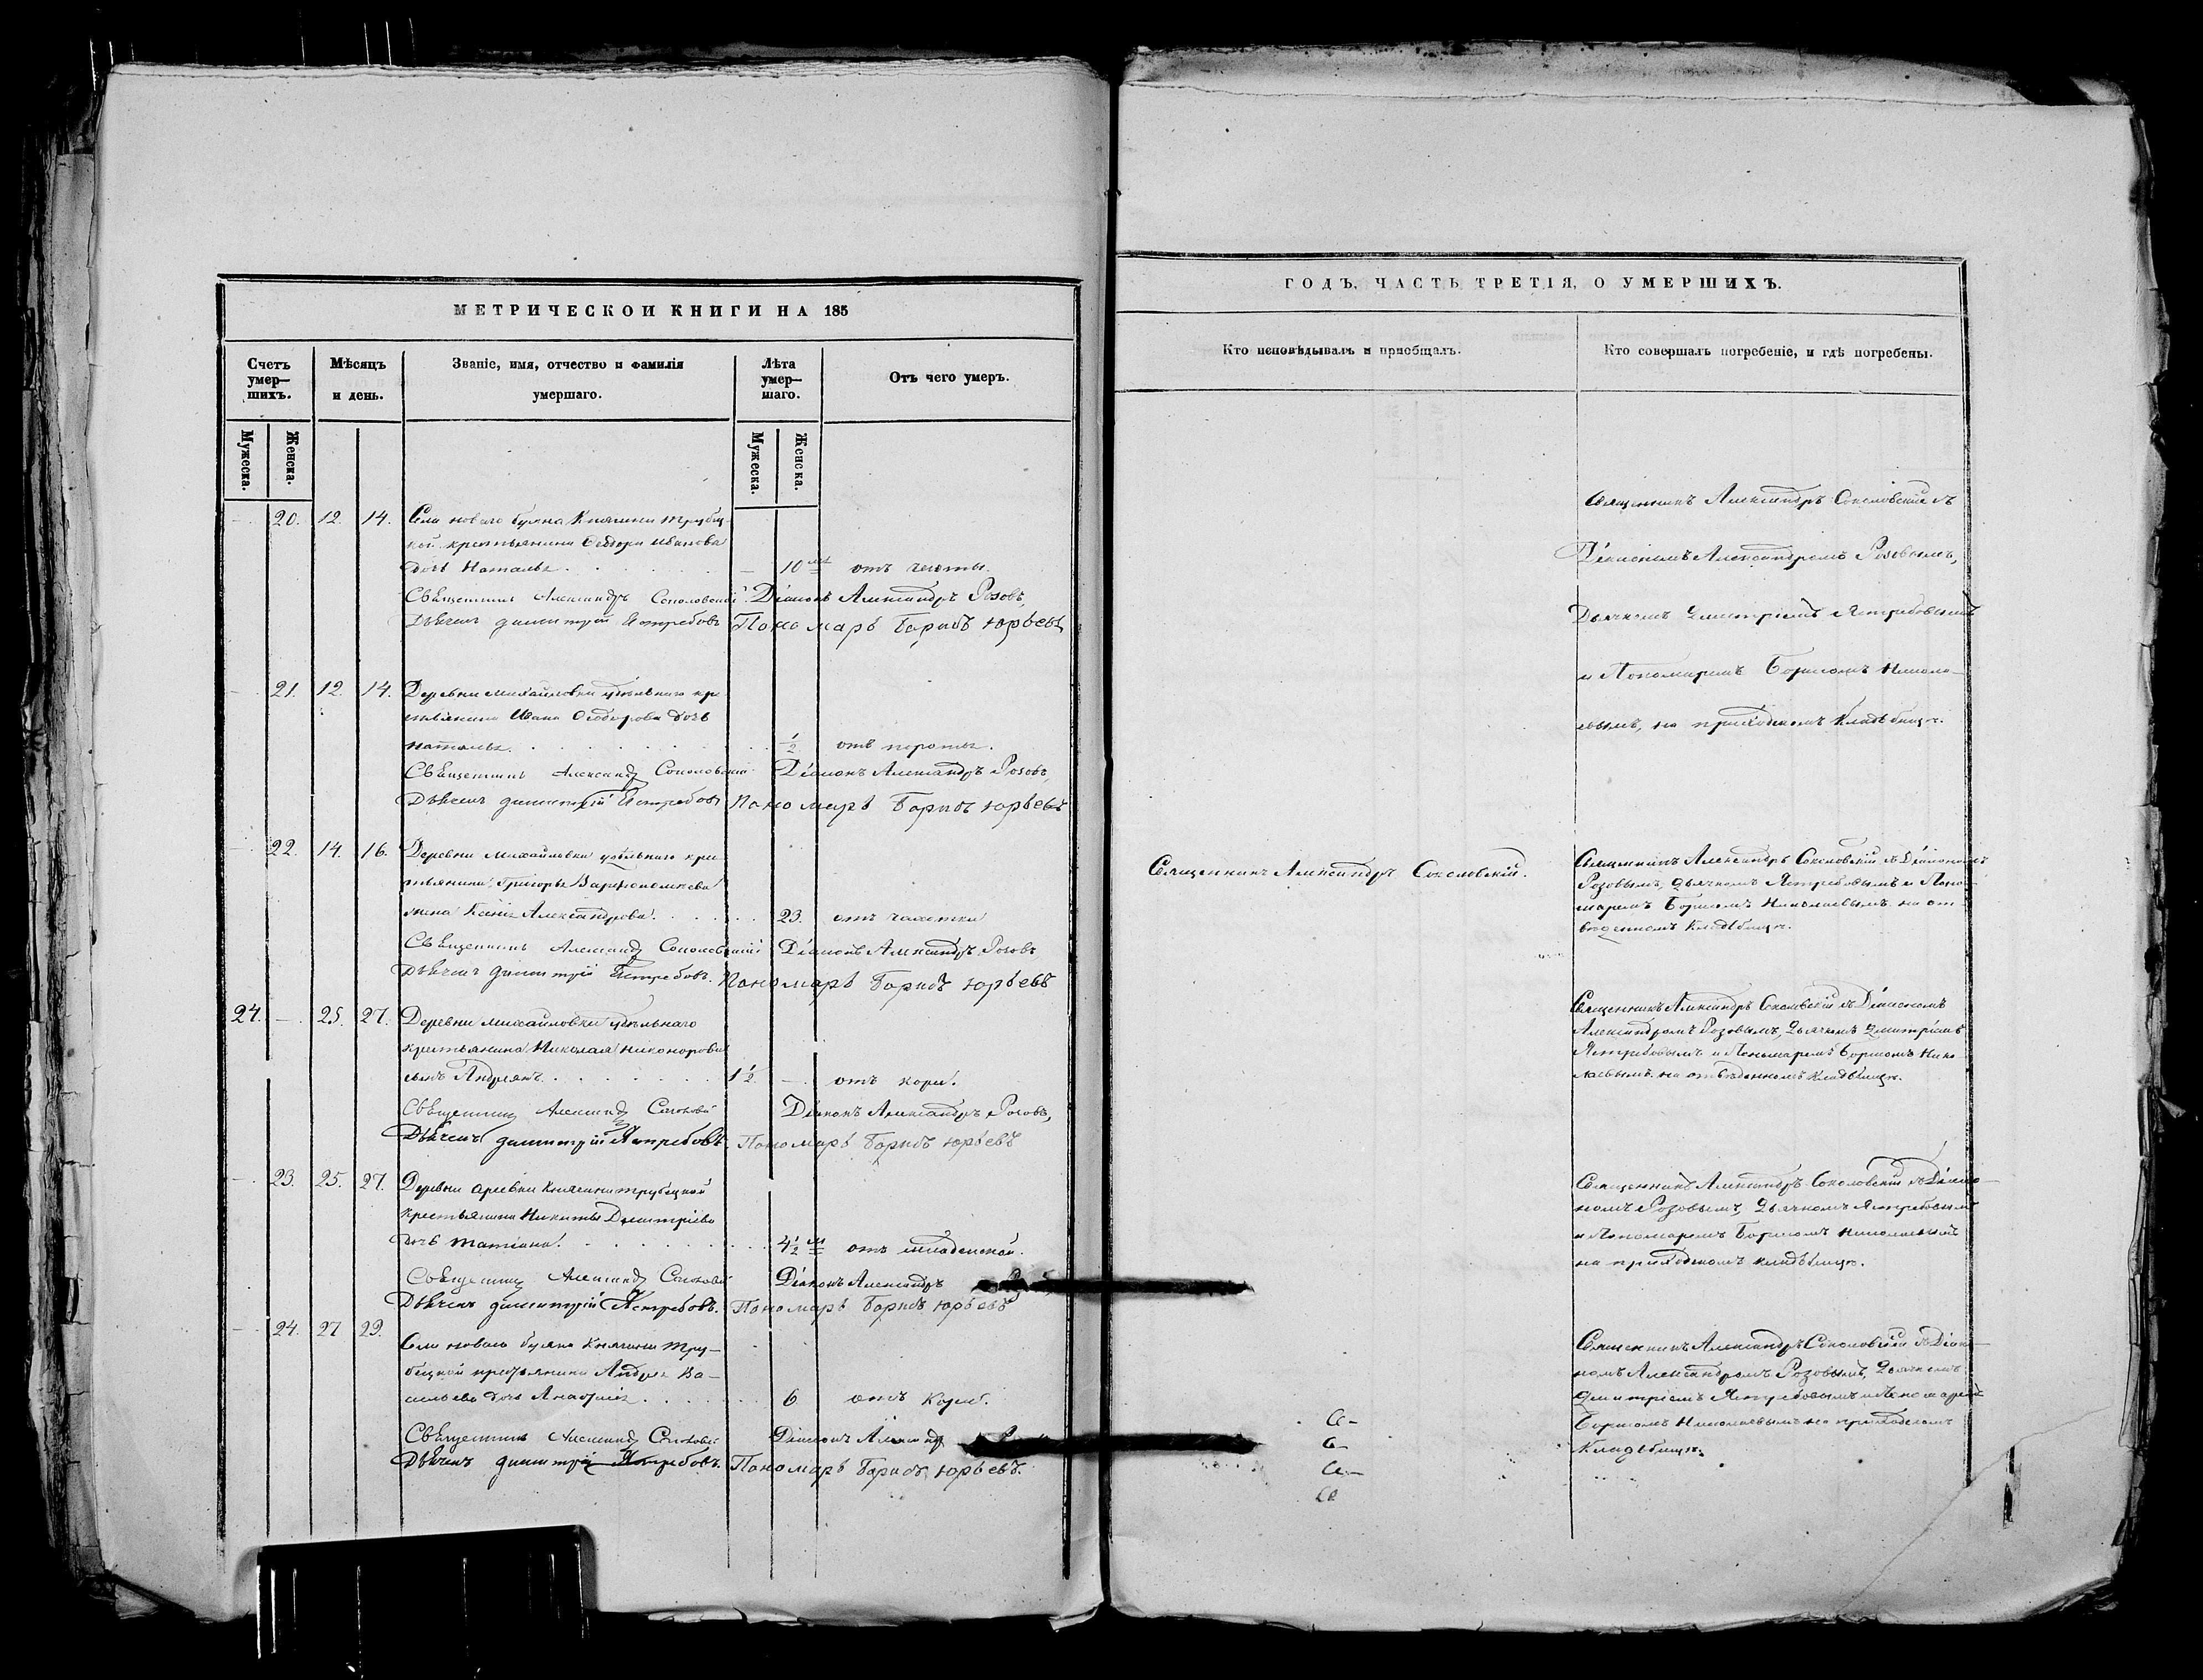 МЕТРИЧЕСКОЙ КНИГИ НА 185
Счетъ умер-шихъ.
Мѣсяцъ и день.
Званіе, имя, отчество и фамилія умершаго.
Лѣта умер-шаго.
Отъ чего умеръ.
Мужеска.
Женска.
Мужеска.
Женска.
20. 12. 14. Села новаго буяна Княгини Трубец-
кой крестьянина Ѳеодора Иванова
дочь Наталья 10 м отъ
Священникъ Александръ Соколовскій Діаконъ Александръ Розовъ,
Дьячекъ Димитрій Ястребовъ Пономарь Борисъ Юрьевъ
21. 12. 14. Деревни Михайловки удѣльнаго кре-
стьянина Ивана Ѳеодорова дочь
Наталья 1/2 отъ
Священникъ Александръ Соколовскій Діаконъ Александръ Розовъ,
Дьячекъ Димитрій Ястребовъ Пономарь Борисъ Юрьевъ
22. 14. 16. Деревни Михайловки удѣльнаго кре-
стьянина Григорья Варфоломеева
жена Ксенія Александрова 23. отъ чахотки
Священникъ Александръ Соколовскій Діаконъ Александръ Розовъ
Дьячекъ Димитрій Ястребовъ. Пономарь Борисъ Юрьевъ
24. 25. 27. Деревни Михайловки удѣльнаго
крестьянина Николая Никонорова
сынъ Андреянъ 1 1/2 отъ кори.
Священникъ Александръ Діаконъ Александръ Розовъ,
Дьячекъ Димитрій Ястребовъ Пономарь Борисъ Юрьевъ
23. 25. 27. Деревни Княгини Трубецкой
крестьянина Никиты Дмитріева
дочь Татіана 4 1/2 м отъ младенской.
Священникъ Александръ Діаконъ Александръ
Дьячекъ Димитрій Ястребовъ. Пономарь Борисъ Юрьевъ
24. 27 29.
Села новаго буяна Княгини Тру-
бецкой крестьянина Андрея Ва-
сильева дочь 6 отъ кори.
Священникъ Александръ Діаконъ
Дьячекъ Димитрій Ястребовъ. Пономарь Борисъ Юрьевъ.
ГОДЪ, ЧАСТЬ ТРЕТІЯ, О УМЕРШИХЪ.
Кто исповѣдывалъ и пріобщалъ.
Кто совершалъ погребеніе, и гдѣ погребены.
Священникъ Александръ Соколовскій съ
Діакономъ Александромъ Розовымъ,
Дьячкомъ Дмитріемъ Ястребовымъ
и Пономаремъ Борисомъ Никола-
евымъ, на приходскомъ кладбищѣ.
Священникъ Александръ Соколовскій.
Священникъ Александръ Соколовскій съ Діакономъ
Розовымъ, дьячкомъ Ястребовымъ и Поно-
маремъ Борисомъ Николаевымъ на от-
веденномъ кладбищѣ.
Священникъ Александръ Соколовскій съ Діакономъ
Александромъ Розовымъ, Дьячкомъ Дмитріемъ
Ястребовымъ и Пономаремъ Борисомъ Нико-
лаевымъ на отведенномъ кладбищѣ.
Священникъ Александръ Соколовскій съ Діако-
номъ Розовымъ, Дьячкомъ Ястребовымъ
и Пономаремъ Борисомъ Николаевымъ
на приходскомъ кладбищѣ.
Священникъ Александръ Соколовскій съ Діако-
номъ Александромъ Розовымъ, Дьячкомъ
Дмитріемъ Ястребовымъ и Пономаремъ
Борисомъ Николаевымъ на приходскомъ
кладбищѣ.